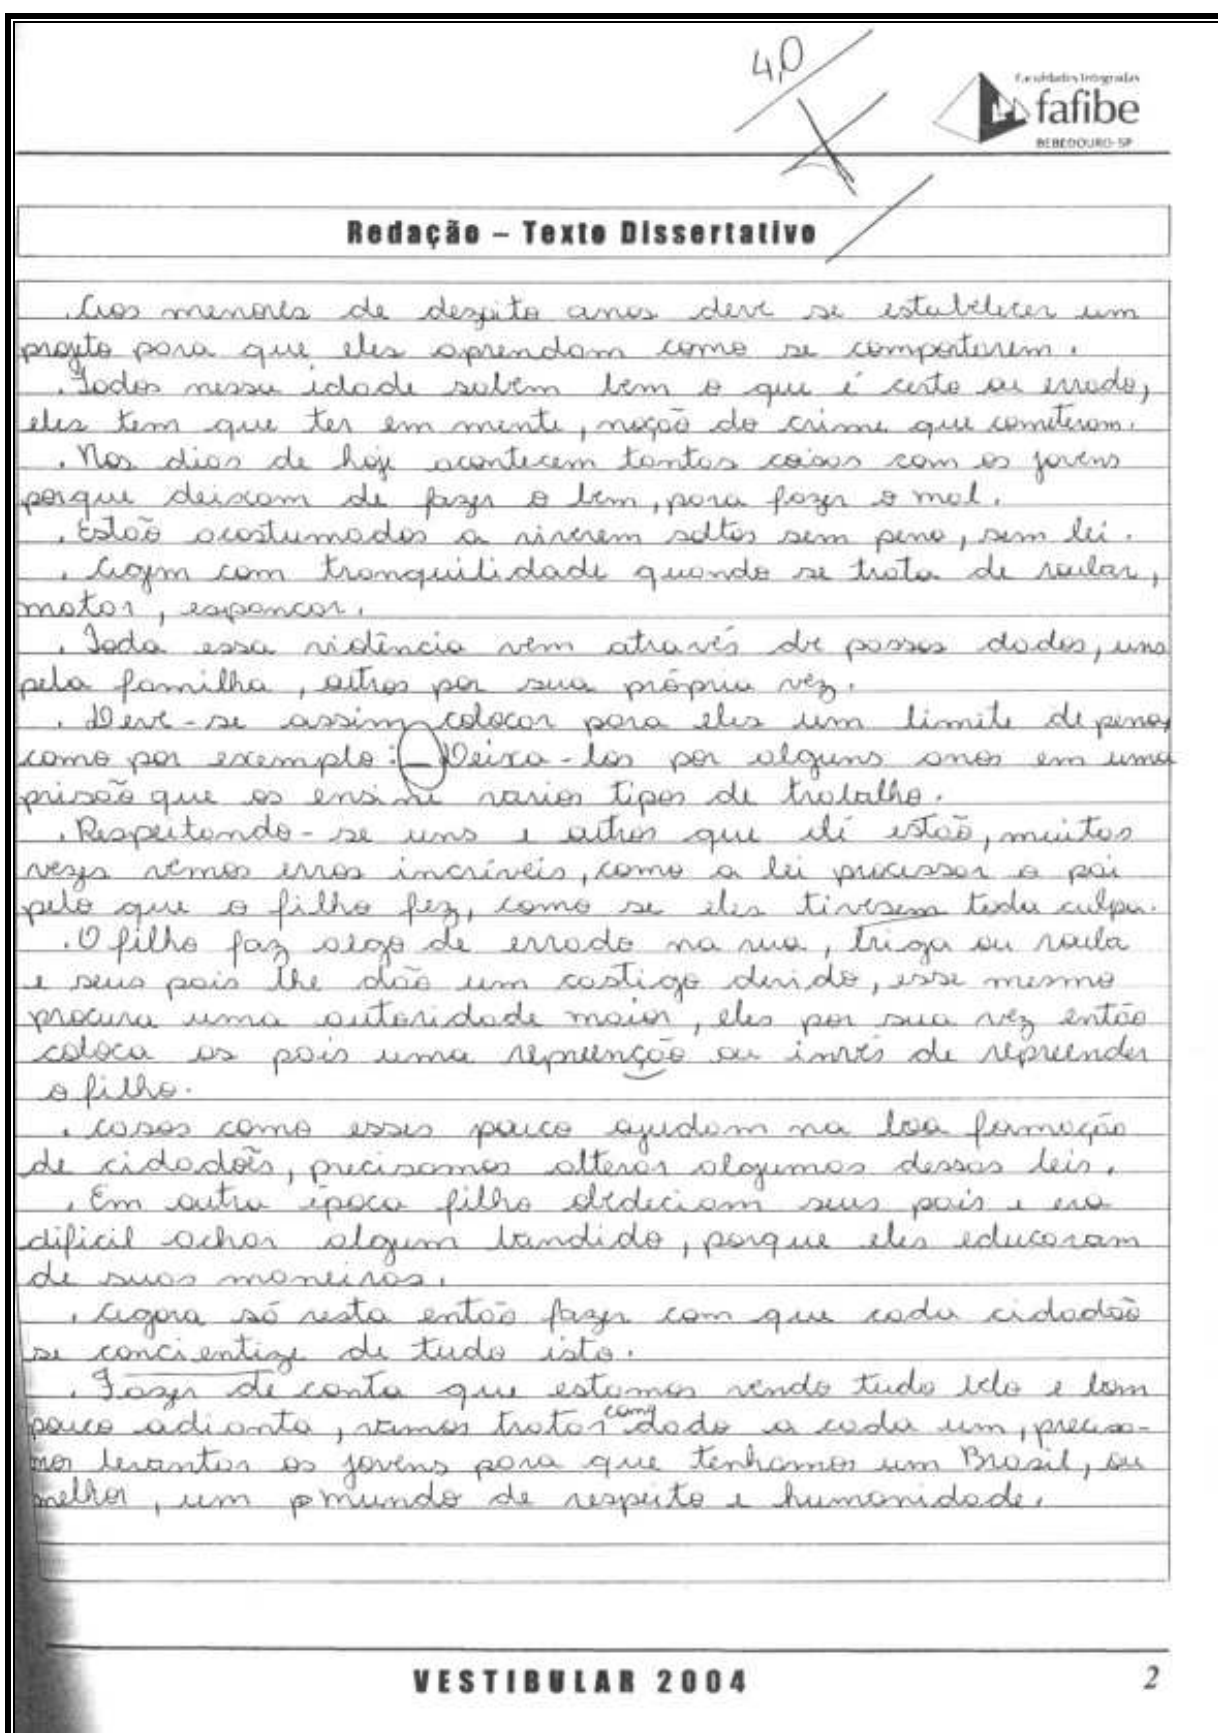 4,0
Faculdades Integradas
fafibe
BEBEDOURO-SP
Redação – Texto Dissertativo
. Aos menores de dezoito anos deve se estabelecer um
projeto para que eles aprendam como se comportarem.
. Todos nessa idade sabem bem o que é certo ou errado,
eles tem que ter em mente, noção do crime que cometeram.
. Nos dias de hoje acontecem tantas coisas com os jovens
porque deixam de fazer o bem, para fazer o mal.
. Estão acostumados a viverem soltos sem pena, sem lei.
. Agem com tranquilidade quando se trata de roubar,
matar, espancar.
. Toda essa violência vem através de passos dados, uns
pela familha, outros por sua própria vez.
. Deve-se assim colocar para eles um limite de pena,
como por exemplo: – Deixa-los por alguns anos em uma
prisão que os ensine varios tipos de trabalho.
. Respeitando-se uns e outros que ali estão, muitas
vezes vemos erros incríveis, como a lei processar o pai
pelo que o filho fez, como se eles tivesem toda culpa.
. O filho faz algo de errado na rua, briga ou rouba
e seus pais lhe dão um castigo devido, esse mesmo
procura uma autoridade maior, eles por sua vez então
coloca os pais uma repreenção ou invés de repreender
o filho.
. Casos como esses pouco ajudam na boa formação
de cidadões, precisamos alterar algumas dessas leis.
. Em outra época filho obdeciam seus pais e era
dificil achar algum bandido, porque eles educaram
de suas maneiras.
. Agora só resta então fazer com que cada cidadão
se concientize de tudo isto.
. Fazer de conta que estamos vendo tudo belo e bom
pouco adianta, vamos tratar como dado a cada um, precisa-
mos levantar os jovens para que tenhamos um Brasil, ou
melhor, um mundo de respeito e humanidade.
VESTIBULAR 2004
2